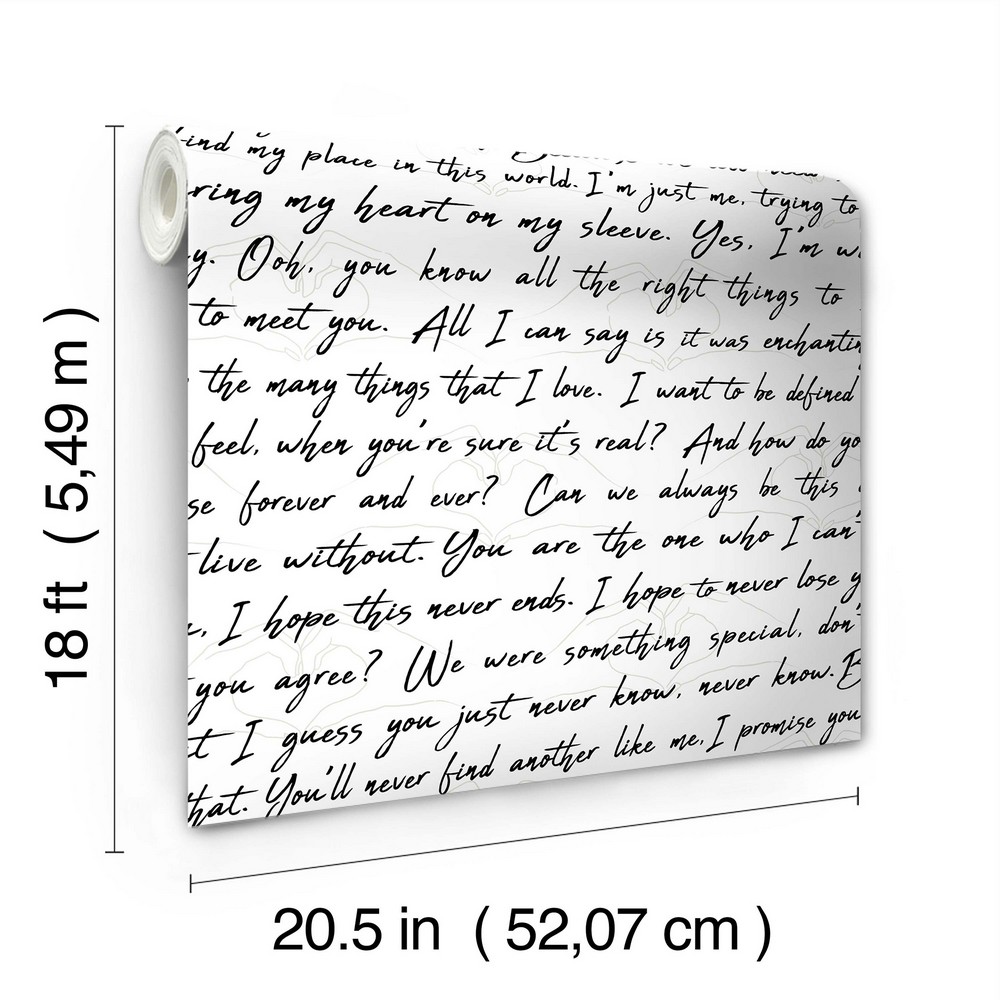 find my place in this world. I'm just me, trying to
ring my heart on my sleeve. Yes, I'm
y. Ooh, you know all the right things to
to meet you. All I can say is it was
the many things that I love. I want to be defined
feel, when you're sure it's real? And how do
se forever and ever? Can we always be this
live without. You are the one who I can'
I hope this never ends. I hope to never lose
you agree? We were something special, don'
t I guess you just never know, never know.
hat. You'll never find another like me, I promise you
18 ft ( 5,49 m )
20.5 in ( 52,07 cm )